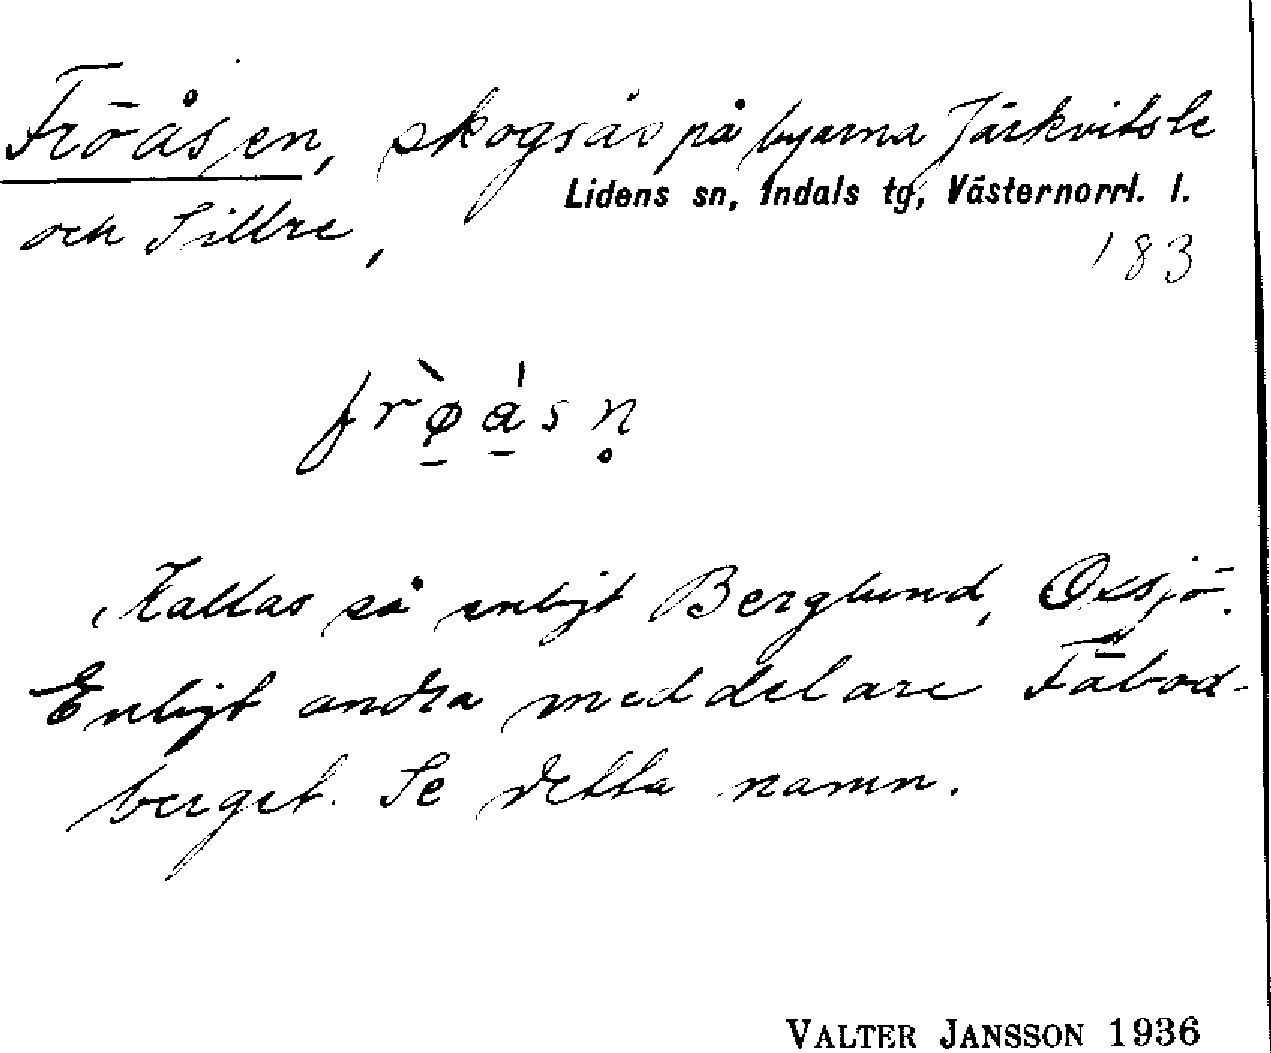 Fröåsen, skogsås på byarna Järkvitsle
Lidens sn, Indals tg, Västernorrl. l.
och Sillre,
183
frø̀ásn̥
Kallas så enligt Berglund, Oxsjö.
Enligt andra meddelare Fäbod-
berget. Se detta namn.
VALTER JANSSON 1936